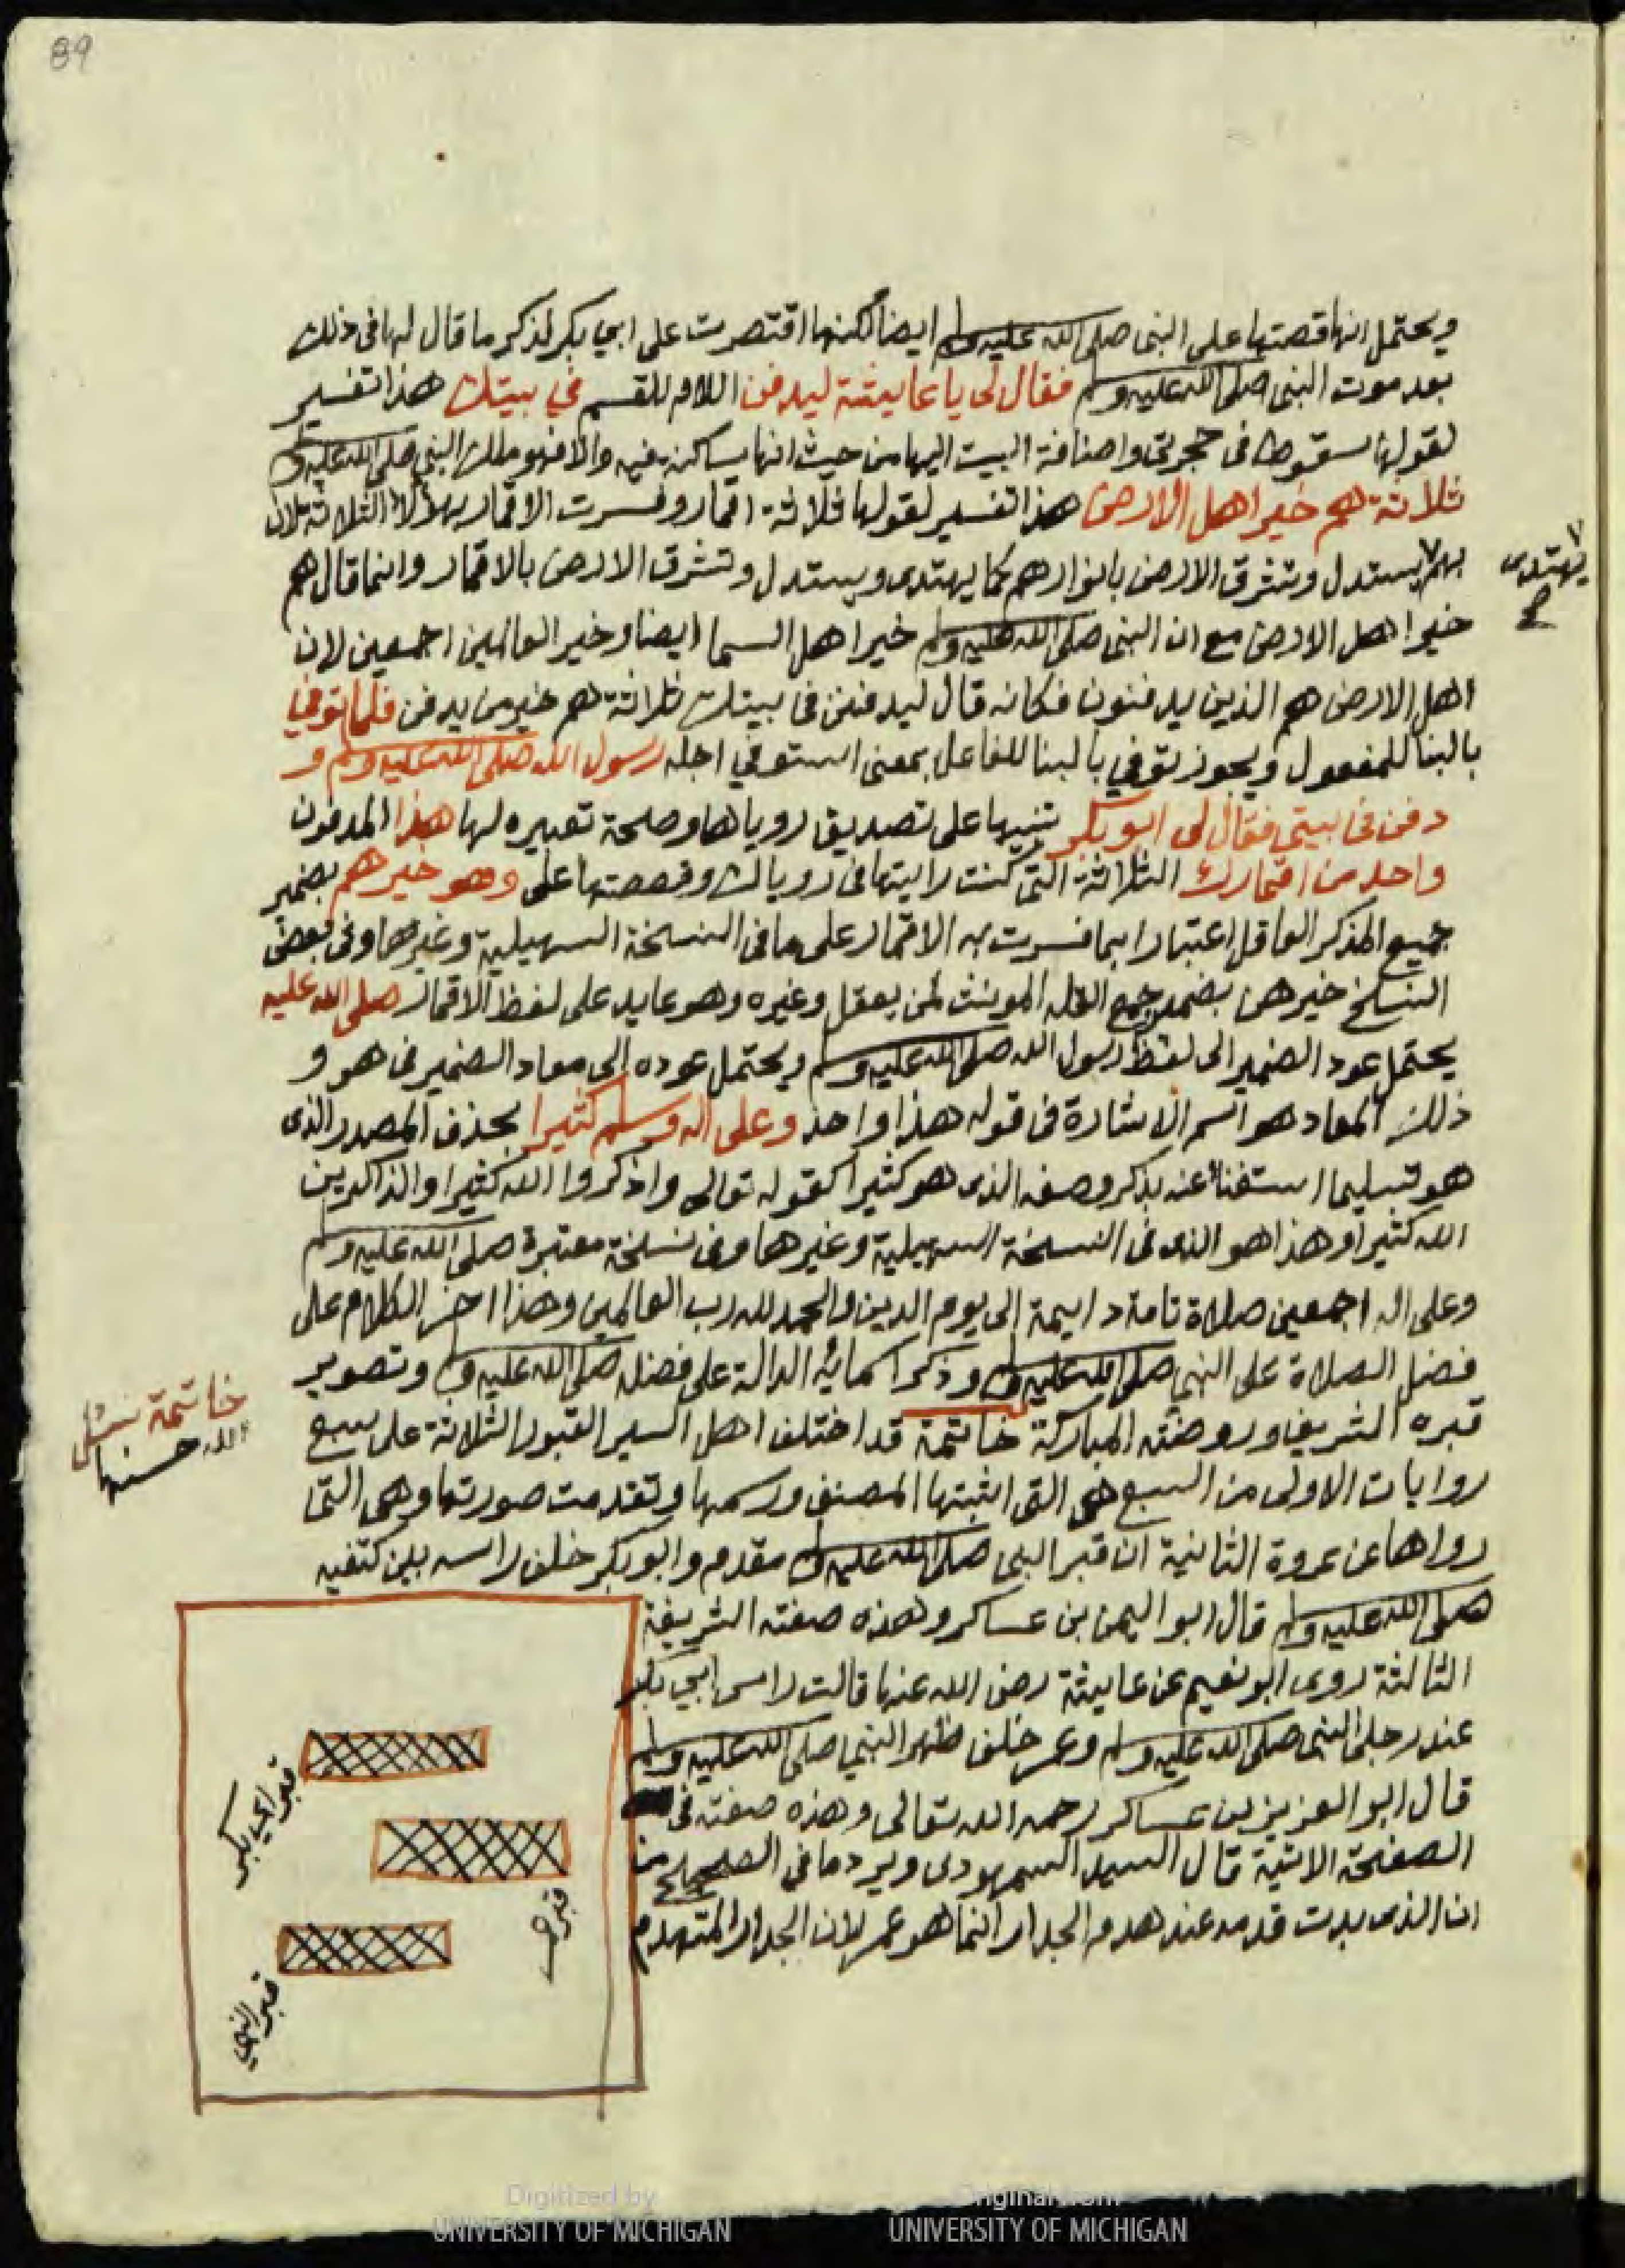 89
ويحتمل انها قصتها على النبى صلى الله عليه وسلم ايضا لكنها اقتصرت على ابي بكر لذكر ما قال لها فى ذلك
بعد موت النبى صلى الله عليه وسلم فقال لى يا عايشة ليدفن اللام للقسم في بيتك هذا تفسير
لقولها سقوطا فى حجرتى واضافة البيت اليها من حيث انها ساكنة فيه والا فهو ملك النبي صلى الله عليه وسلم
ثلاثة هم خير اهل الارض هذا تفسير لقولها ثلاثة اقمار وفسرت الاقمار بهؤلا الثلاثة لان
بهم يستدل وتشرق الارض بانوارهم كما يهتدى ويستدل وتشرق الارض بالاقمار وانما قال هم
يهتدى
خير اهل الارض مع ان النبى صلى الله عليه وسلم خير اهل السما ايضا وخير العالمين اجمعين لان
اهل الارض هم الذين يدفنون فكانه قال ليدفنن فى بيتك ثلاثة هم خير من يدفن فلما توفي
بالبنا للمفعول ويجوز توفي بالبنا للفاعل بمعنى استوفي اجله رسول الله صلى الله عليه وسلم و
دفن فى بيتى فقال لى ابو بكر تنبيها على تصديق روياها وصحة تعبيره لها هذا المدفون
واحد من اقمارك الثلاثة التى كنت رايتها فى روياك وقصصتها على وهو خيرهم بضمير
جميع المذكر العاقل اعتبارا بما فسرت به الاقمار على ما فى النسخة السهيلية وغيرها وفى بعض
النسخ خيرهن بضمير جمع القلة الموينث لمن يعقل وغيره وهو عايد على لفظ الاقمار صلى الله عليه
يحتمل عود الضمير الى لفظ رسول الله صلى الله عليه وسلم ويحتمل عوده الى معاد الضمير فى هو و
ذلك المعاد هو اسم الاشارة فى قوله هذا واحد وعلى اله وسلم كثيرا بحذف المصدر الذى
هو تسليما استغنا عنه بذكر وصفه الذى هو كثيرا كقوله تعالى واذكروا الله كثيرا والذاكرين
الله كثيرا وهذا هو الذى فى النسخة السهيلية وغيرها وفى نسخة معتبرة صلى الله عليه وسلم
وعلى اله اجمعين صلاة تامة دايمة الى يوم الدين والحمد لله رب العالمين وهذا اخر الكلام على
فضل الصلاة على النبى صلى الله عليه وسلم وذكر اسمايه الدالة على فضله صلى الله عليه وسلم وتصوير
قبره الشريف وروضته المباركة خاتمة قد اختلف اهل السير القبور الثلاثة على سبع
خاتمة نسئل
الله حسنها
روايات الاولى من السبع هى التى اثبتها المصنف ورسمها وتقدمت صورتها وهى التى
رواها عن عروة الثانية ان قبر النبى صلى الله عليه وسلم مقدم وابو بكر خلف راسه بين كتفيه
صلى الله عليه وسلم قال ابو اليمن بن عساكر وهذه صفته الشريفة
الثالثة روى ابو نعيم عن عايشة رضى الله عنها قالت راس ابي بكر
عند رجلى النبى صلى الله عليه وسلم وعمر خلف ظهر النبى صلى الله عليه وسلم
قال ابو العزيز بن عساكر رحمه الله تعالى وهذه صفته فى
الصفحة الاتية قال السيد السمهودى ويرد ما فى الصحيح من
ان الذى بدت قدمه عند هدم الجدار انما هو عمر لان الجدار المتهدم
قبر ابي بكر
قبر عمر
قبر النبي
Digitized by
UNIVERSITY OF MICHIGAN
Original from
UNIVERSITY OF MICHIGAN